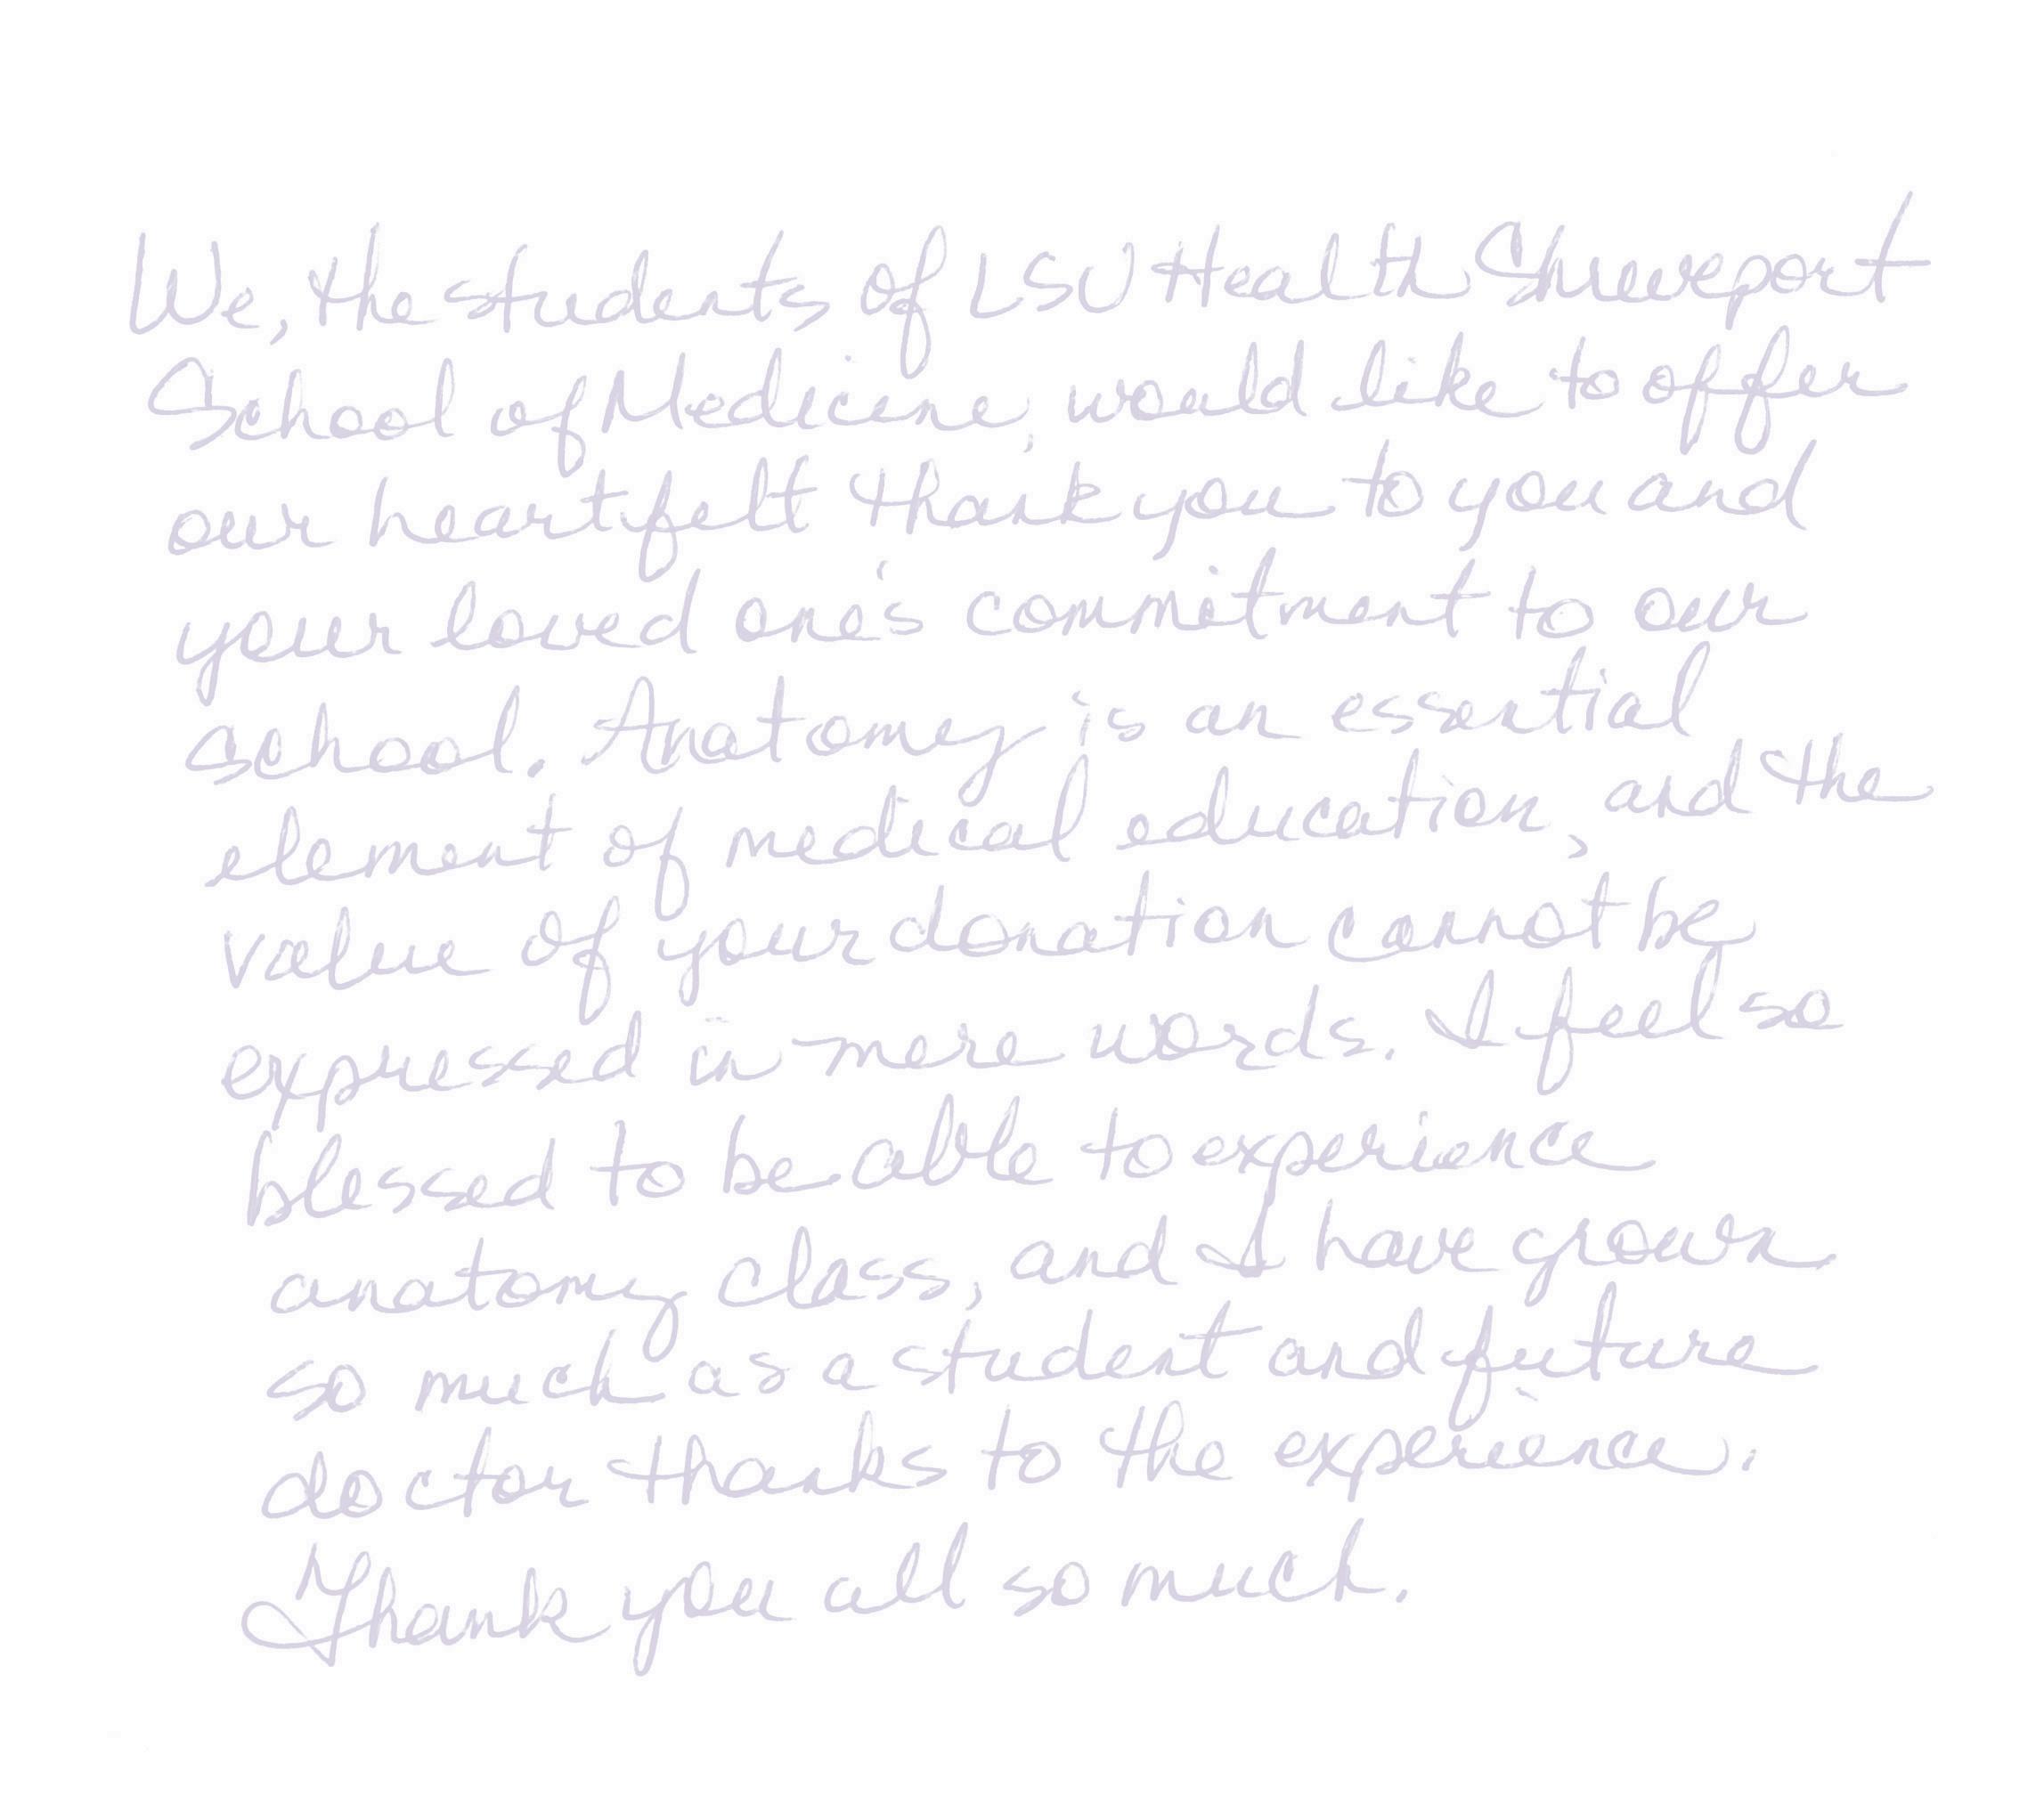 We, the students, of LSU Health Shreveport
School of Medicine, would like to offer
our heartfelt thank you to you and
your loved one's commitment to our
school. Anatomy is an essential
element of medical education, and the
value of your donation cannot be
expressed in mere words. I feel so
blessed to be able to experience
anatomy class, and I have grown
so much as a student and future
doctor thanks to the experience.
Thank you all so much.